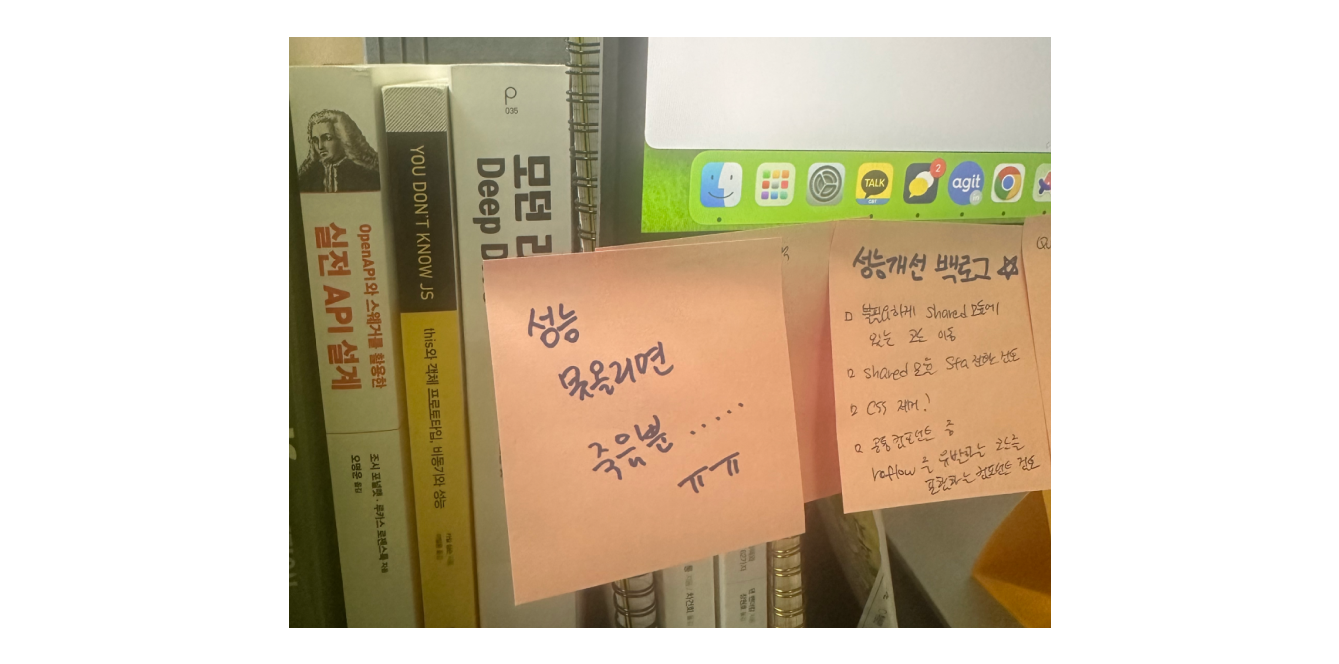 OpenAPI와 스웨거를 활용한
실전 API 설계
조시 포널랫·루카스 로젠스톡 지음
오명운 옮김
YOU DON'T KNOW JS
this와 객체 프로토타입, 비동기와 성능
035
모던 리
Deep D
TALK
CBT
2
agit
성능
못올리면
죽음뿐 .....
ㅠㅠ
성능개선 백로그 ☆
□ 불필요하게 shared 모듈에
있는 코드 이동
□ shared 모듈 Sfa 전환 검토
□ CSS 제거!
□ 공통 컴포넌트 중
reflow를 유발하는 코드를
포함하는 컴포넌트 검토
차건회